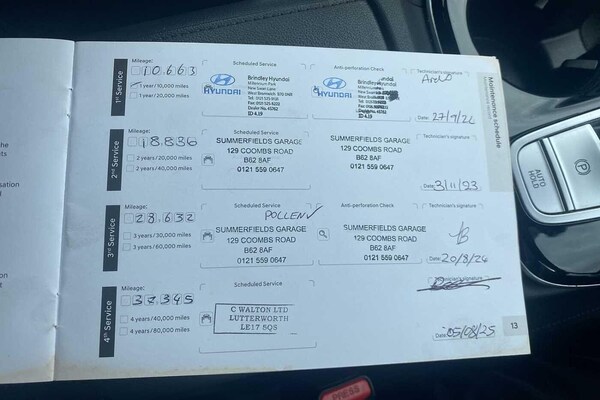 Maintenance schedule
1st Service
Mileage:
10,663
1 year/10,000 miles
1 year/20,000 miles
Scheduled Service
HYUNDAI
Brindley Hyundai
Millennium Park
New Swan Lane
West Bromwich
Dealer No. 45262
ID 4.19
Anti-perforation Check
HYUNDAI
Brindley Hyundai
Millennium Park
ID 4.19
Technician's signature
Date: 27/9/22
2nd Service
Mileage:
18,836
2 years/20,000 miles
2 years/40,000 miles
Scheduled Service
SUMMERFIELDS GARAGE
129 COOMBS ROAD
B62 8AF
0121 559 0647
SUMMERFIELDS GARAGE
129 COOMBS ROAD
B62 8AF
0121 559 0647
Technician's signature
Date: 3/11/23
3rd Service
Mileage:
28,632
3 years/30,000 miles
3 years/60,000 miles
Scheduled Service
POLLEN ✓
SUMMERFIELDS GARAGE
129 COOMBS ROAD
B62 8AF
0121 559 0647
Anti-perforation Check
SUMMERFIELDS GARAGE
129 COOMBS ROAD
B62 8AF
0121 559 0647
Technician's signature
Date: 20/8/24
4th Service
Mileage:
37,345
4 years/40,000 miles
4 years/80,000 miles
Scheduled Service
C WALTON LTD
LUTTERWORTH
LE17 5QS
Date: 05/08/25
13
AUTO
HOLD
P
PRESS